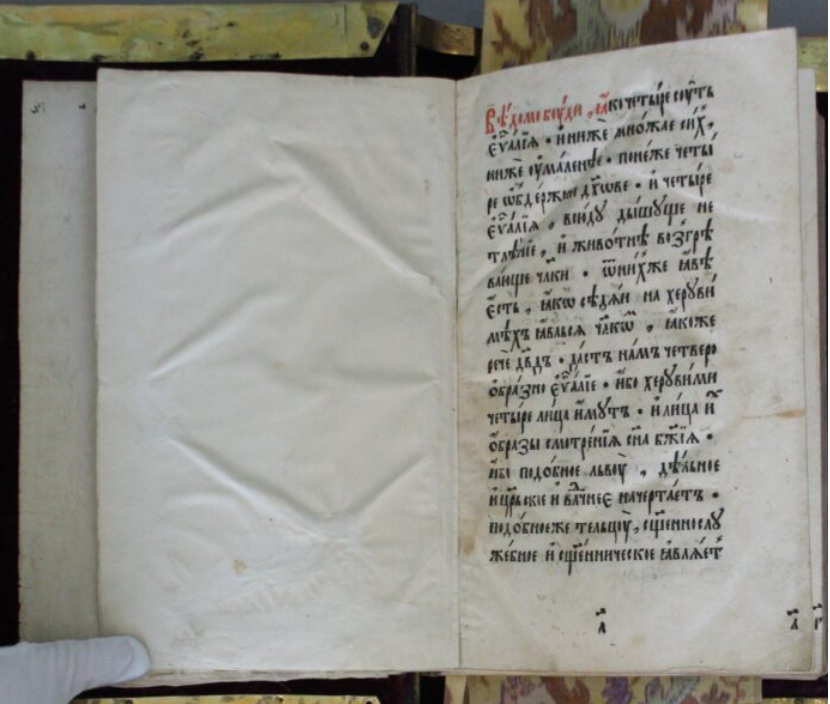 Вѣ́домо бꙋ́ди , ꙗ҆́ко четы́ре сꙋ́ть
є҆ѵⷢ҇а́лїѧ • и҆ ни́же мно́жае си́хъ ,
нижѐ ᲂу҆ма́ленѣе • поне́же четы́
ре ѡ҆бде́ржнїи дꙋ́хове • и҆ четы́ре
є҆ѵⷢ҇а́лїѧ , всю́дꙋ ды́шꙋще не
тлѣ́нїе , и҆ живо́тнѣ возгрѣ
ва́юще чл҃ки • ѿ ни́хже ꙗ҆́вѣ
є҆́сть , ꙗ҆́кѡ сѣдѧ́й на херꙋви́
мѣхъ ꙗ҆вльсѧ чл҃кѡ́ , ꙗ҆́коже
речѐ дв҃дъ • да́стъ на́мъ четверо
ѡ҆бра́зно є҆ѵⷢ҇а́лїе • и҆́бо херꙋви́ми
четы́ре лица̀ и҆́мꙋтъ • и҆ лица̀ и҆́
ѡ҆́бразы смотре́нїѧ сн҃а бж҃їѧ •
и҆́бо подо́бное льво́ꙋ , дѣ́льное
и҆ цр҃ьское и҆ вл҃чнее начерта́етъ •
подо́бноеже тельцо́ꙋ , сщ҃еннослꙋ
же́бное и҆ сщ҃е́нническое ꙗ҆влѧ́етъ
а҃